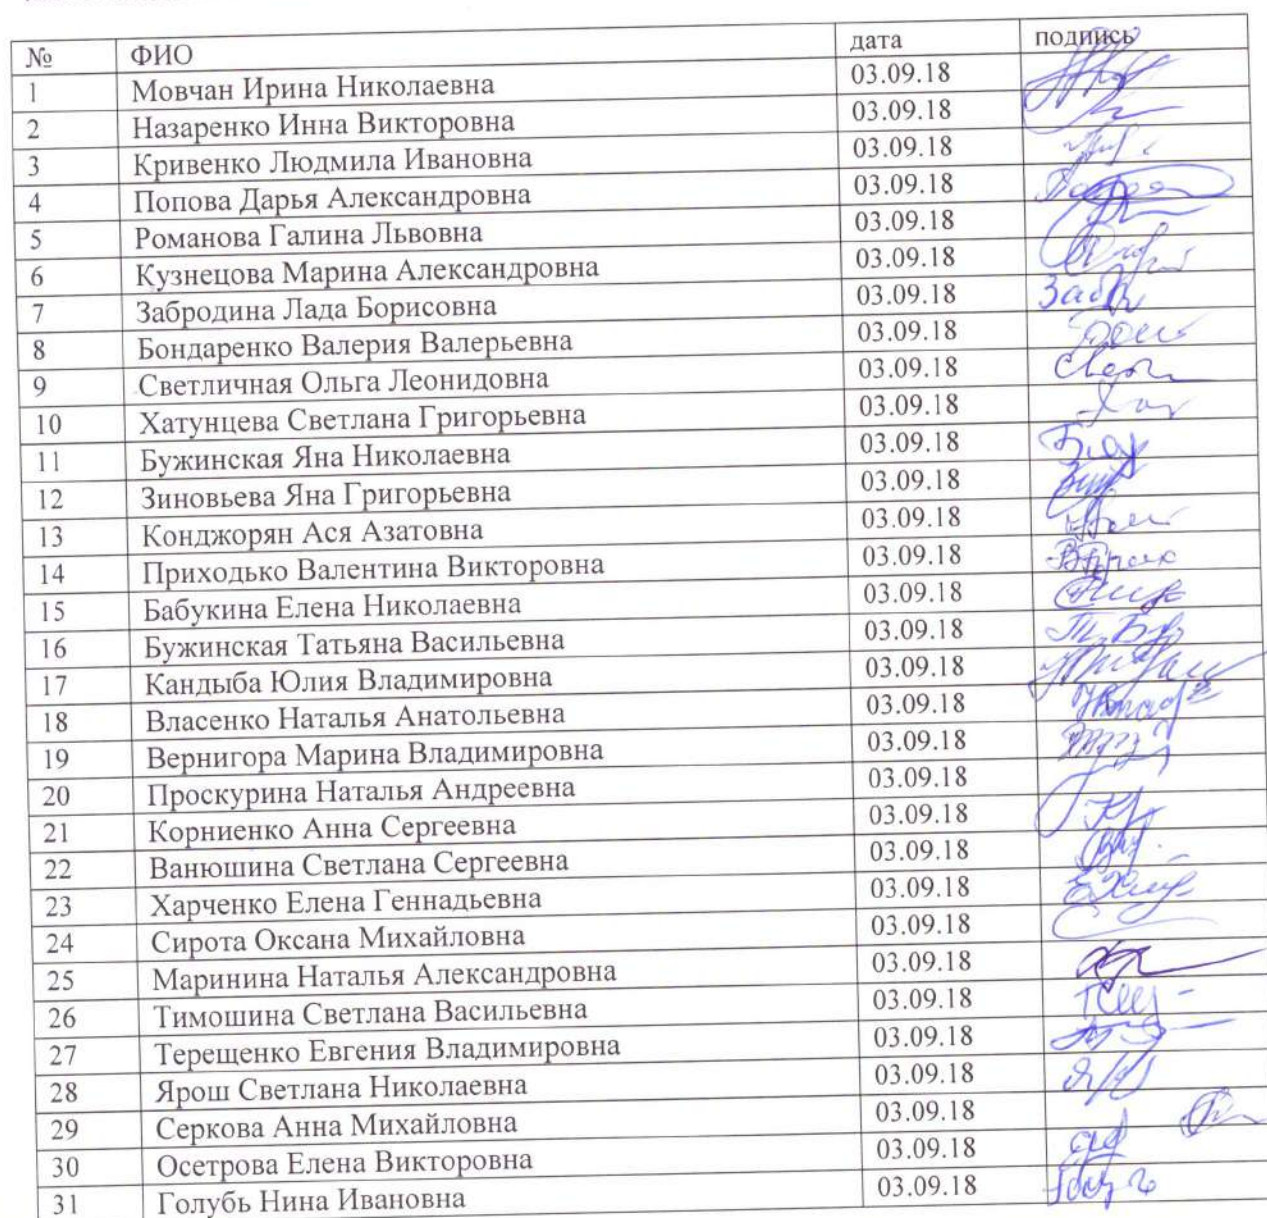 № ФИО дата подпись
1 Мовчан Ирина Николаевна 03.09.18
2 Назаренко Инна Викторовна 03.09.18
3 Кривенко Людмила Ивановна 03.09.18
4 Попова Дарья Александровна 03.09.18
5 Романова Галина Львовна 03.09.18
6 Кузнецова Марина Александровна 03.09.18
7 Забродина Лада Борисовна 03.09.18
8 Бондаренко Валерия Валерьевна 03.09.18
9 Светличная Ольга Леонидовна 03.09.18
10 Хатунцева Светлана Григорьевна 03.09.18
11 Бужинская Яна Николаевна 03.09.18
12 Зиновьева Яна Григорьевна 03.09.18
13 Конджорян Ася Азатовна 03.09.18
14 Приходько Валентина Викторовна 03.09.18
15 Бабукина Елена Николаевна 03.09.18
16 Бужинская Татьяна Васильевна 03.09.18
17 Кандыба Юлия Владимировна 03.09.18
18 Власенко Наталья Анатольевна 03.09.18
19 Вернигора Марина Владимировна 03.09.18
20 Проскурина Наталья Андреевна 03.09.18
21 Корниенко Анна Сергеевна 03.09.18
22 Ванюшина Светлана Сергеевна 03.09.18
23 Харченко Елена Геннадьевна 03.09.18
24 Сирота Оксана Михайловна 03.09.18
25 Маринина Наталья Александровна 03.09.18
26 Тимошина Светлана Васильевна 03.09.18
27 Терещенко Евгения Владимировна 03.09.18
28 Ярош Светлана Николаевна 03.09.18
29 Серкова Анна Михайловна 03.09.18
30 Осетрова Елена Викторовна 03.09.18
31 Голубь Нина Ивановна 03.09.18